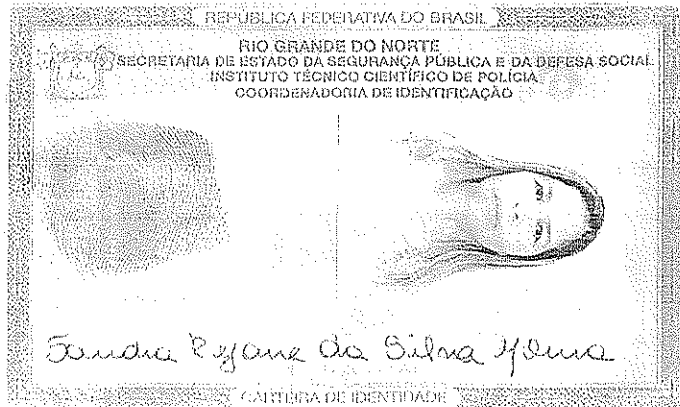 REPÚBLICA FEDERATIVA DO BRASIL
RIO GRANDE DO NORTE
SECRETARIA DE ESTADO DA SEGURANÇA PÚBLICA E DA DEFESA SOCIAL
INSTITUTO TÉCNICO CIENTÍFICO DE POLÍCIA
COORDENADORIA DE IDENTIFICAÇÃO
Sandra Rejane da Silva
CARTEIRA DE IDENTIDADE